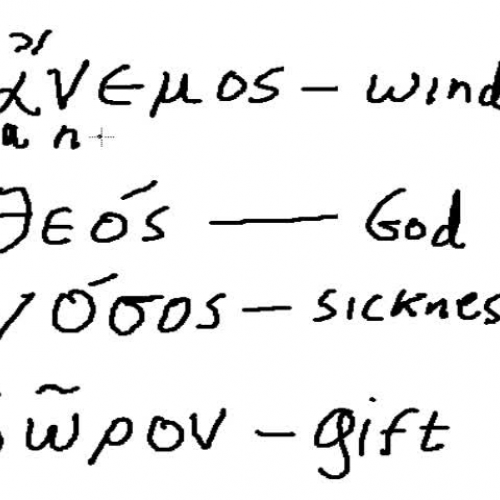 ἄνεμος - wind
a n
θεός — God
νόσος - sicknes
δῶρον - gift